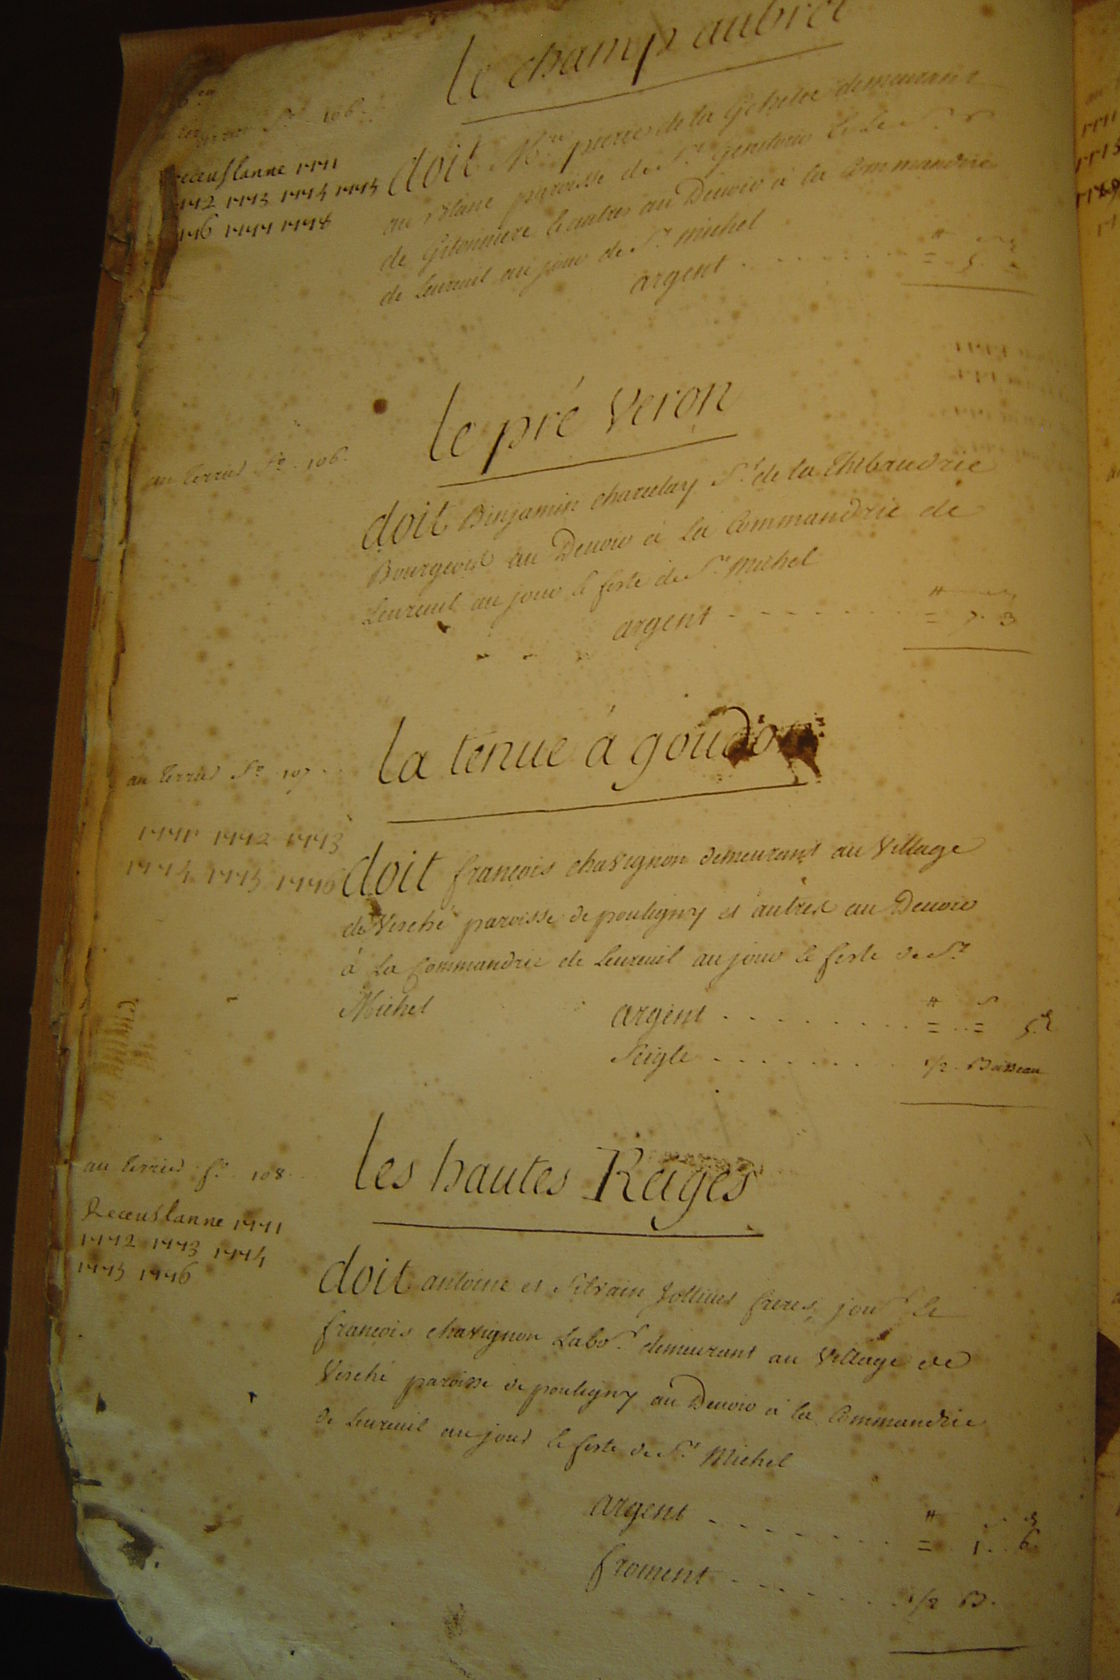 le champ aubret
au terrier f.o 106.
Receu Lanne 1771
1772 1773 1774 1775
1776 1777 1778
doit M.re pierre de la
au Blanc paroisse de S.t Genitour
de et autres au Devoir a la Commandrie
de Leureuil au jour de S.t michel
argent
le pré Veron
au terrier f.o 106.
doit Binjamin charelay S.r de la Thibaudrie
Bourgeois au Devoir a la Commandrie de
Leureuil au jour & feste de S.t Michel
argent = 7. 3
la tenue a goudon
au terrier f.o 107.
1771 1772 1773
1774 1775 1776
doit françois chavignon demeurant au Village
de Vesché paroisse de pouligny et autres au Devoir
à La Commandrie de Leureuil au jour & feste de S.t
Michel
argent = = 5 d
Seigle 1/2 Boisseau
les hautes Reiges
au terrier f.o 108.
Receu Lanne 1771
1772 1773 1774
1775 1776
doit antoine et Silvain Jollivet freres, jou.r &
françois chavignon Labo.r demeurant au Village de
Vesché paroisse de pouligny au Devoir a la Commandrie
de Leureuil au jour & feste de S.t Michel
argent = 1. 6
froment 1/2 B.